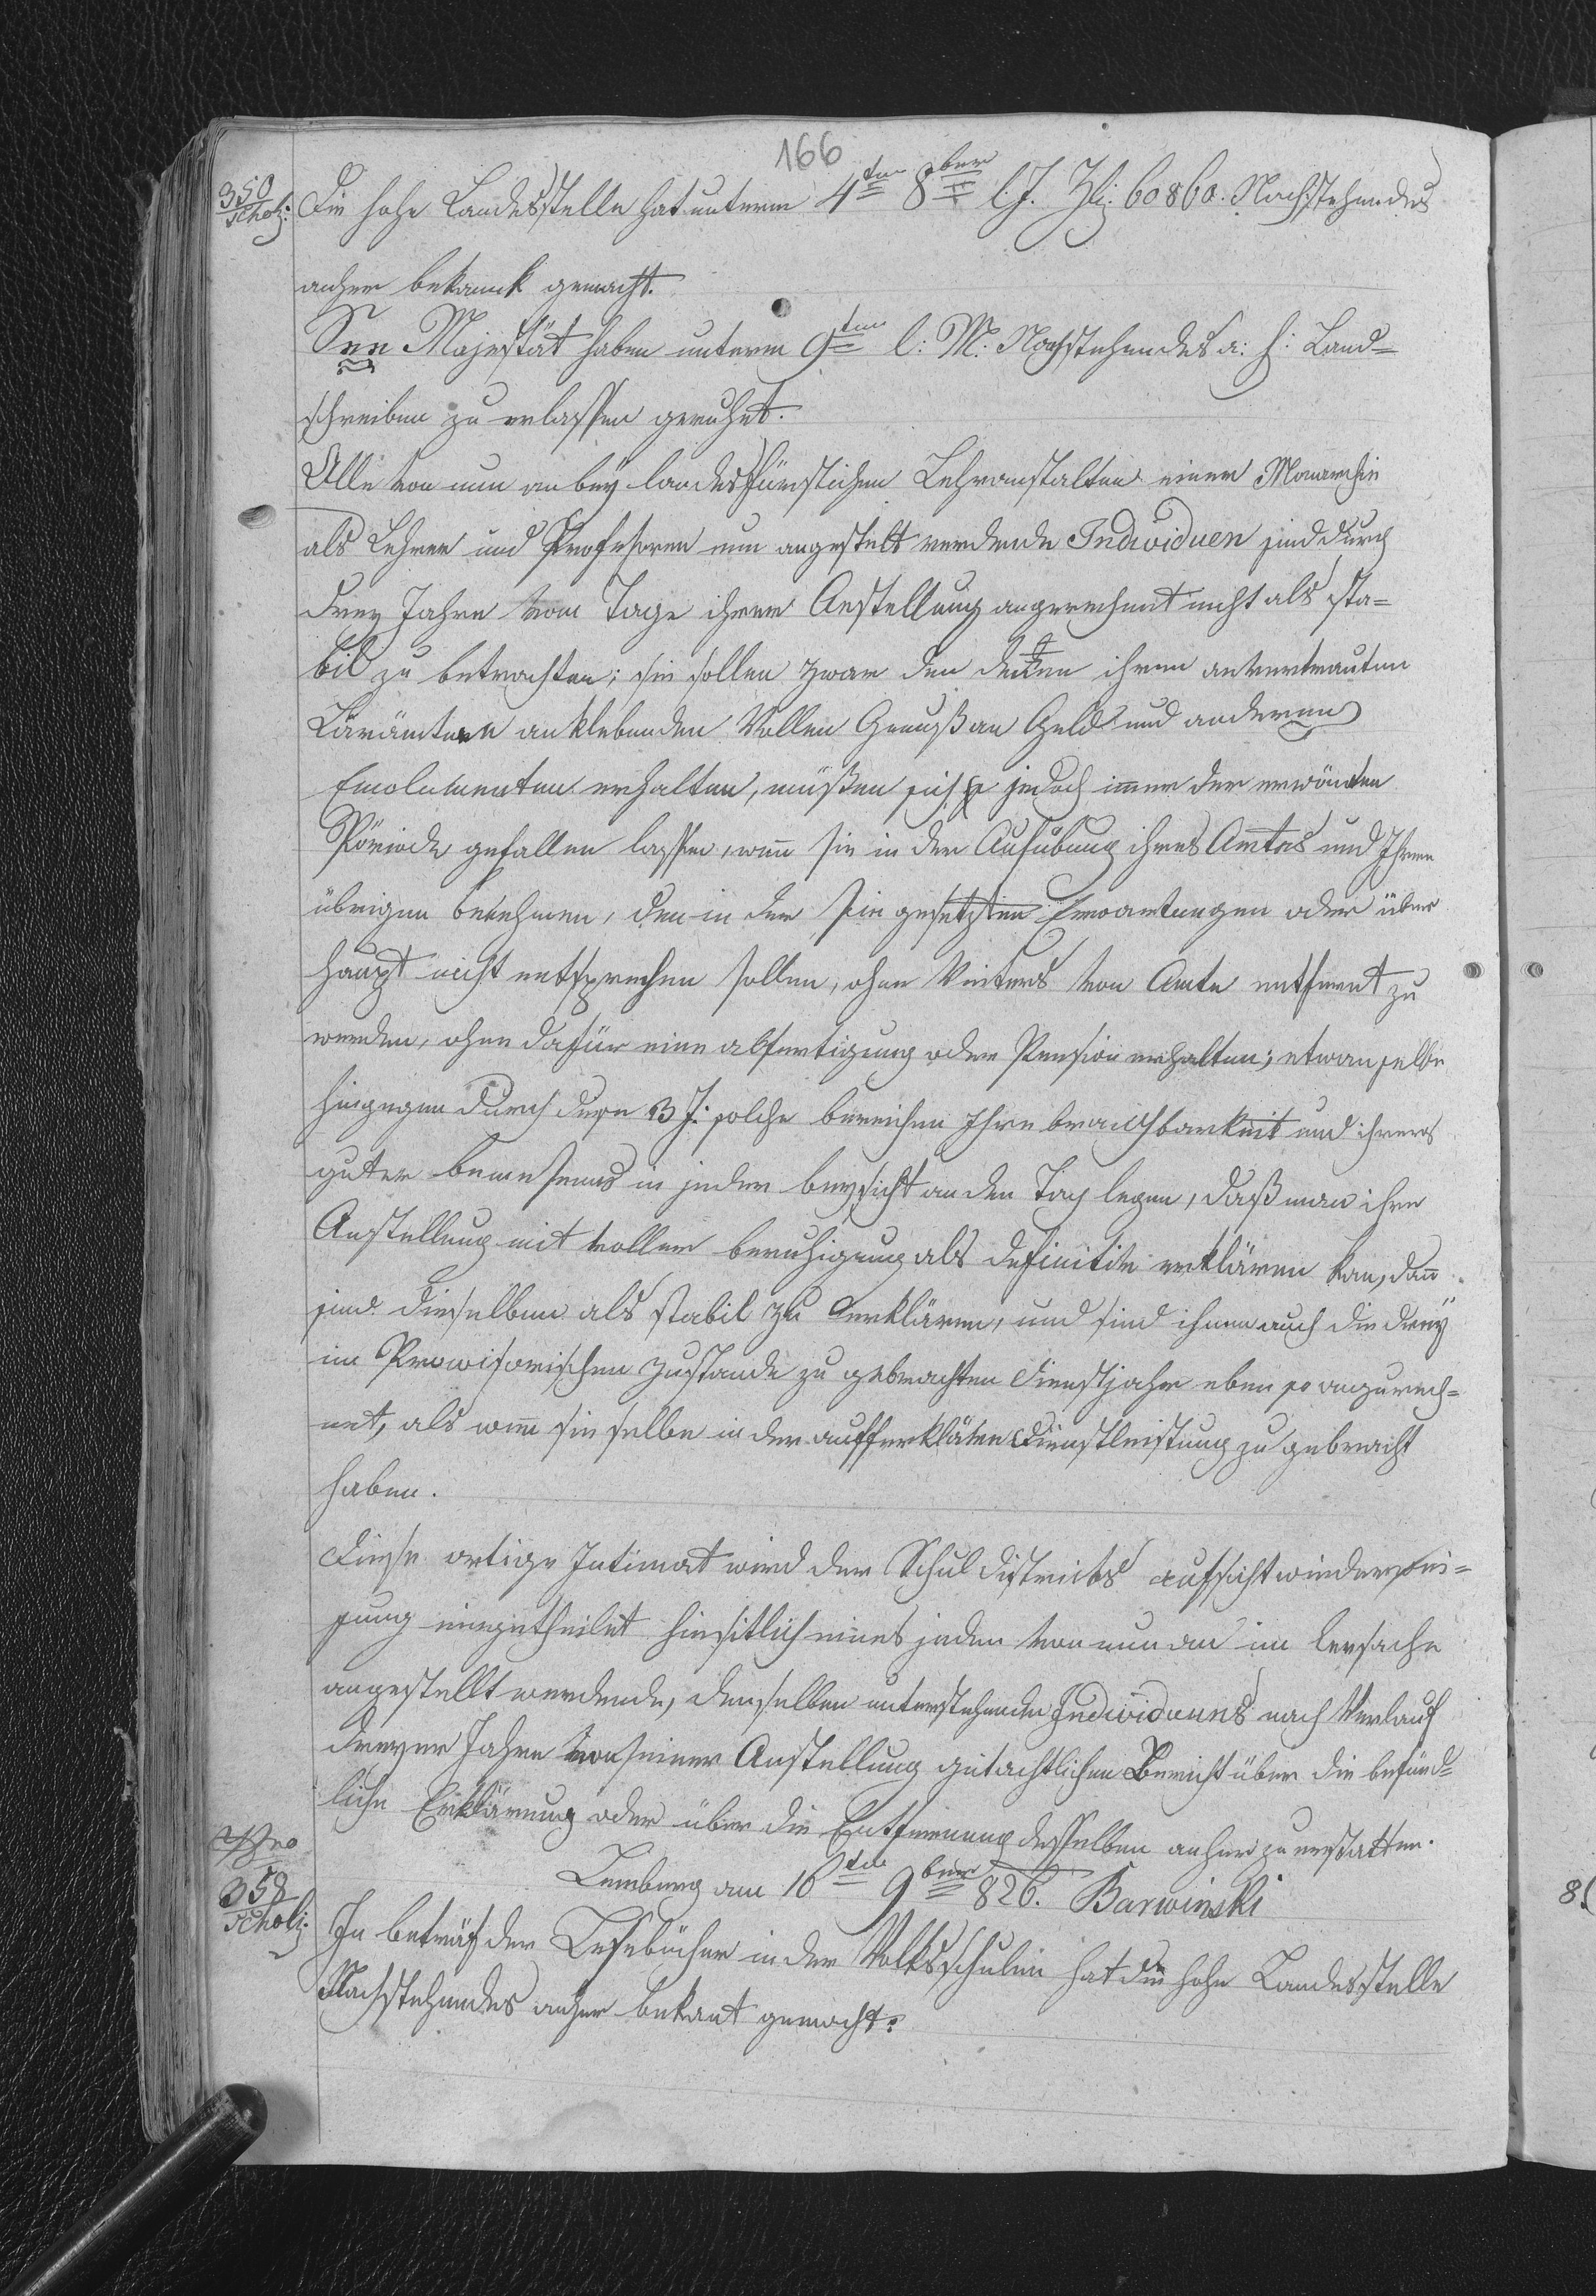 166
350
Schol:
Die hohe Landesstelle hat unterm 4ten 8ber l: J. Zhl: 60860. Nachstehendes
anher bekannt gemacht.
Sne Majestät haben unterm 9ten l: M: Nachstehendes a: h: Hand=
schreiben zu erlassen geruhet.
Alle von nun an bey landesfürstlichen Lehranstalten einer Monarchie
als Lehrer und Professoren nun angestelt werdende Individuen sind durch
drey Jahre vom Tage ihrer Anstellung angerechnet nicht als sta=
bil zu betrachten; sie sollen zwar den ihrem anvertrauten
anklebenden Vollen Genuß an Geld und anderen
Emolumenten erhalten, müßen sich jedoch immer der erwänten
Pöriode gefallen lassen, wenn sie in der Ausübung ihres Amtes und Ihrem
übrigen benehmen, den in der sie gesetzten Erwartungen oder über
haupt nicht entsprechen sollen, ohne Weiters von Amte entfernt zu
werden, ohne dafür eine abfertigung oder Pension erhalten; etwan selbe
hingegen durch diese 3 J: solche beweisen Ihre brauchbarkeit und ihreres
guter benemens in jeder beysicht an den Tag legen, daß man ihre
Anstellung mit voller beruhigung als definitiv erklären kan, dann
sind dieselben als stabil zu erklären, und sind ihnen auch die drey
im Prowisorischen Zustande zu gebrachten Dienstjahr eben so anzurech=
net, als wenn sie selbe in der Dienstleistung zu gebracht
haben.
Diese ortige Intimat wird der Schul districts aufsicht
hinsitlich eines jeden von nun an im
angestellt werdende, denselben unterstehenden Individuums nach Verlauf
dreyer Jahre von seiner Anstellung gutachtlichen Bericht über die befünd=
liche Erklärung oder über die Entfernung desselben anher zu erstatten.
Lemberg am 16ten 9ber 826. Barwinski
Nro
358
Schol:
In beträf der Lesebücher in der Volksschulen hat die hohe Landesstelle
Nachstehendes anher bekant gemacht: